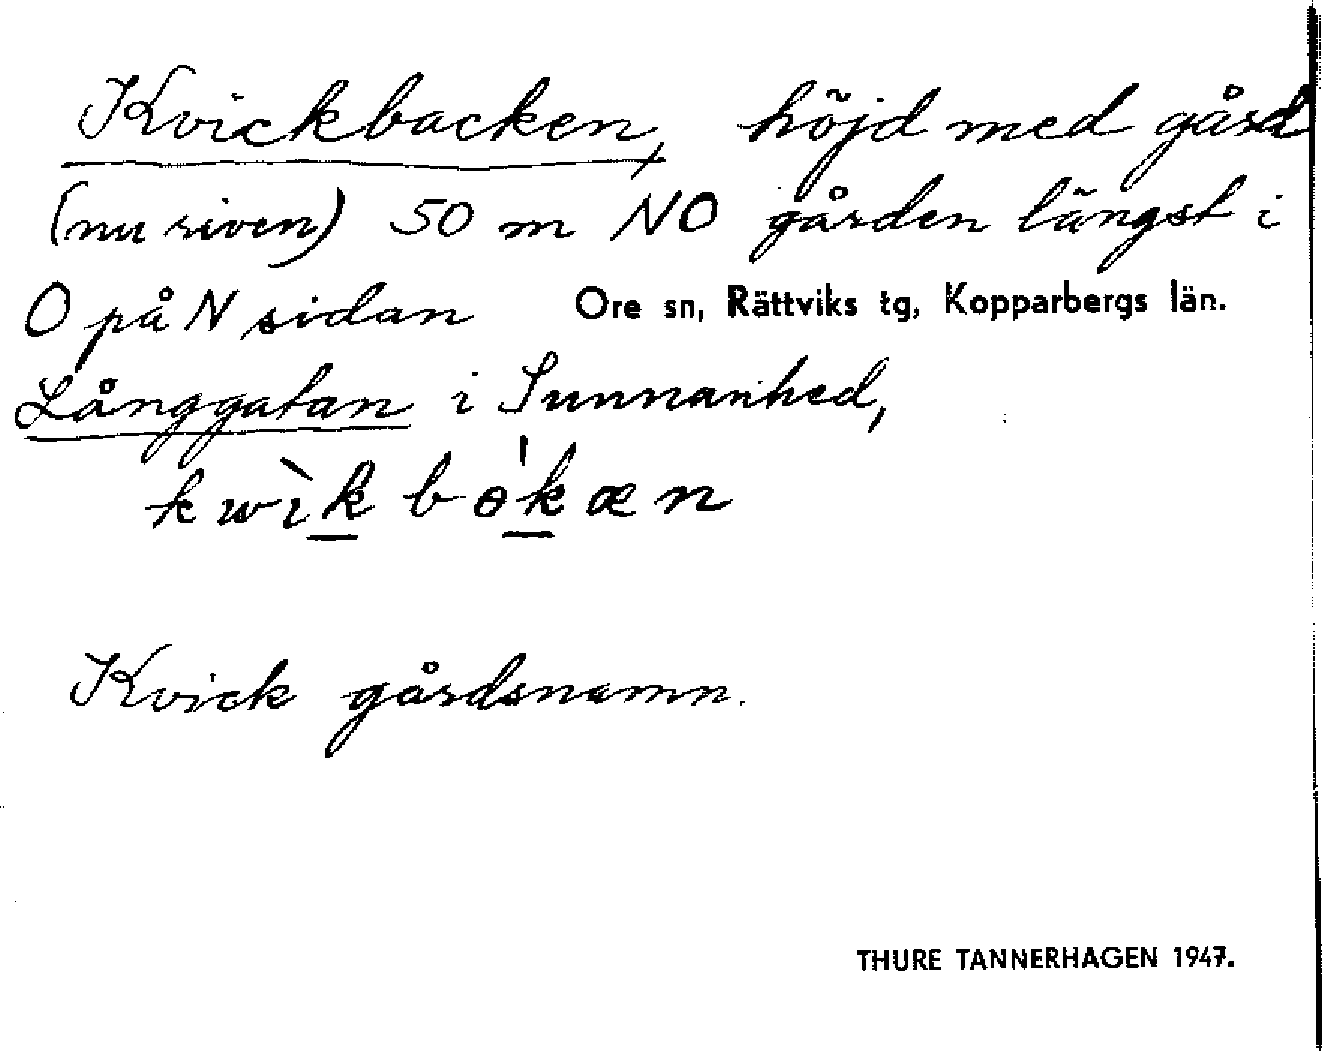 Kvickbacken, höjd med gård
(nu riven) 50 m NO gården längst i
O på N sidan Ore sn, Rättviks tg, Kopparbergs län.
Långgatan i Sunnanhed,
kwìk bòkæn
Kvick gårdsnamn.
THURE TANNERHAGEN 1947.